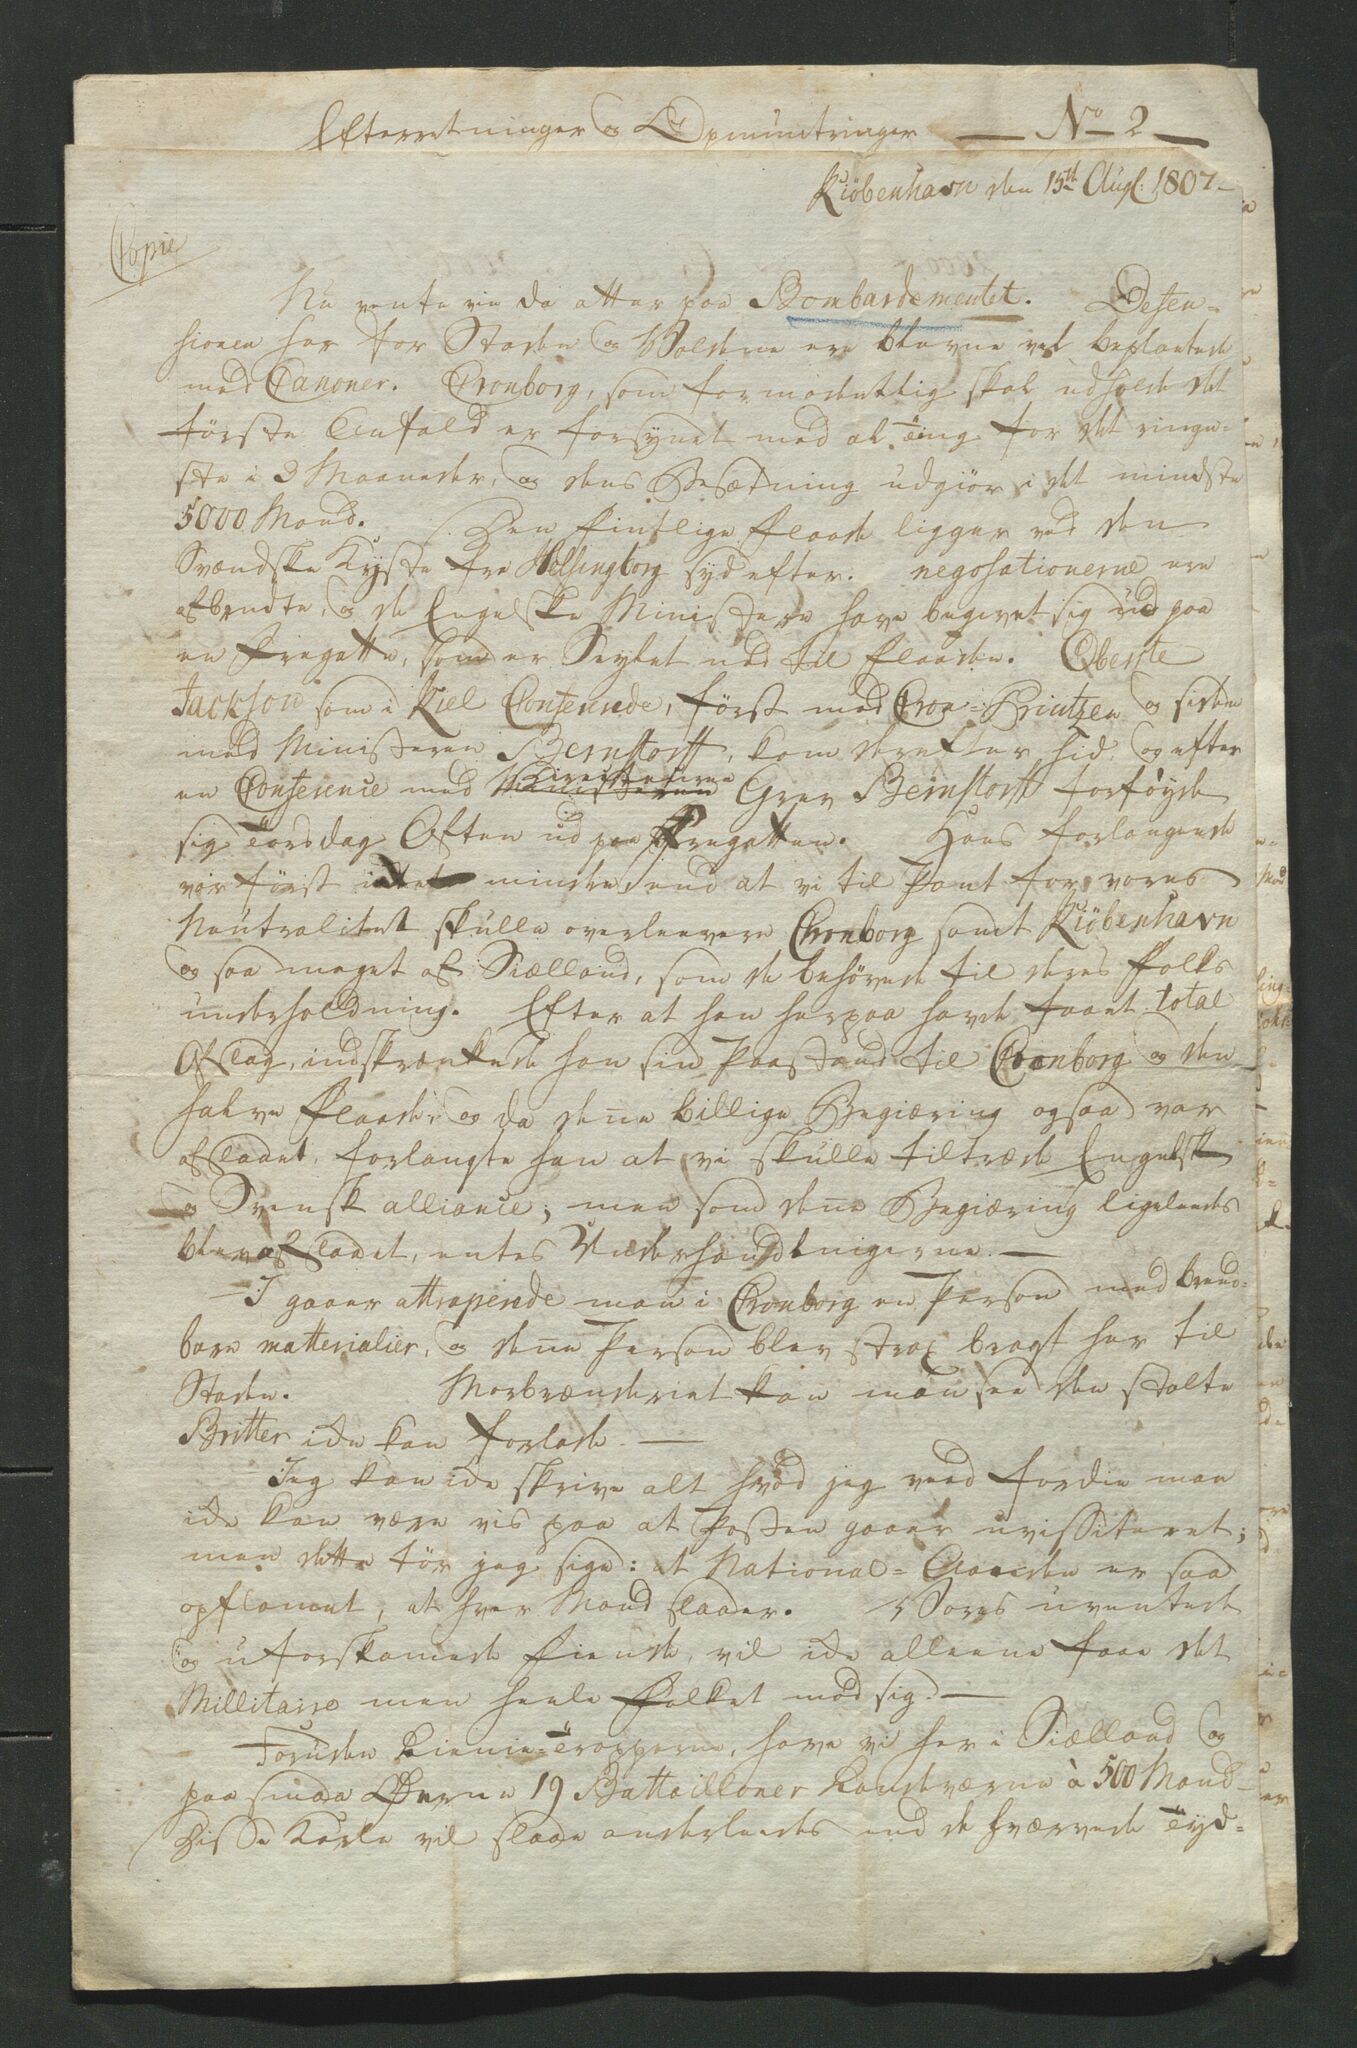 Efterretninger og Opmuntringer — No 2 —
Kiöbenhavn den 15de Aug: 1807 —
Copie
Nu vente vie da atter paa Bombardementet. Defen=
sionen her for Staden og Voldene ere blevne vel beplantede
med Canoner. Cronborg, som formodentlig skal udholde det
förste Anfald er forsynet med al ting for det ringe=
ste i 3 Maaneder, og dens Besætning udgiör i det mindste
5000 Mand. Den fientlige flaade ligger ved den
Svendske Kyste fra Helsingborg sydefter. negosationerne ere
afbrudte, og de Engelske Ministere have begivet sig ud paa
en fregatte, som er Seylet ned til flaaden. Oberste
Jackson som i Kiel Conferede, först med Cron=Printzen og siden
med Ministeren Bernstorff, kom derefter hid og efter
en Conference med Ministeren Grev Bernstorff forföyede
sig Torsdag Aften ud paa Fregatten. Hans forlangende
var först intet mindre, end at vi til Pant for vores
Neutralitet skulle overleevere Cronborg samt Kiöbenhavn
og saa meget af Siælland, som de behövede til deres Folks
underholdning. Efter at han herpaa havde faaet total
Afslag, indskrænkede han sin Paastand til Cronborg og den
halve flaade, og da denne billige Begiæring ogsaa var
afslaaet, forlangte han at vi skulle tiltræde Engelsk
og Svensk alliance; men som denne Begiæring ligeleedes
blev afslaaet, entes Underhandlingerne. —
I gaaer attraperede man i Cronborg en Person med brend=
bare matterialier, og denne Person blev strax bragt her til
Staden. Morbrænderiet kan man see den stolte
Britter ike kan forlade. —
Jeg kan ike skrive alt hvad jeg veed fordie man
ike kan være vis paa at Posten gaaer uvissiteret;
men dette tör jeg sige: at National=Aanden er saa
opflamet, at hver Mand slaaer. Vores uventede
og uforskamede fiende, vil ike alleene faae det
Millitaire men heele Folket mod sig. —
Foruden Linie=Tropperne, have vi her i Siælland og
paa smaa Öerne 19 Battailloner Landeværne à 500 Mand —
Disse Karle vil slaae anderleedes end de hværvede Tyd=